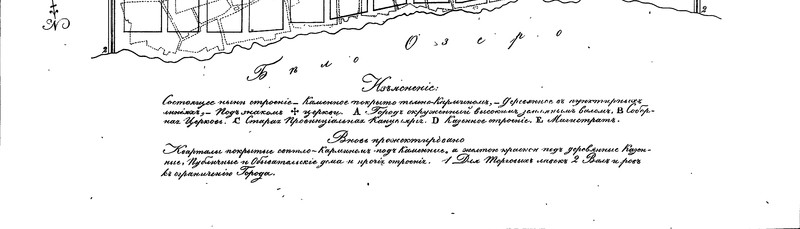 2
2
Бѣло Озеро
Изъясненіе:
Состоящее нынѣ строеніе — Каменное покрыто темно-Карминомъ, — Деревянное въ пунктирныхъ
линіяхъ, — Подъ знакомъ ✝ церкви. А Городъ окруженный высокимъ землянымъ валомъ, В Собор-
ная Церковь. С Старая Провинціальная Канцелярія. D Казенное строеніе. Е Магистратъ.
Вновь прожектировано
Кварталы покрытые свѣтло-Карминомъ подъ Каменные, а желтою краскою подъ деревянные Казен-
ные, Публичные и Обывательскіе дома и прочіе строеніи. 1 Для Торговыхъ лавокъ 2 Валъ и ровъ
къ ограниченію Города.